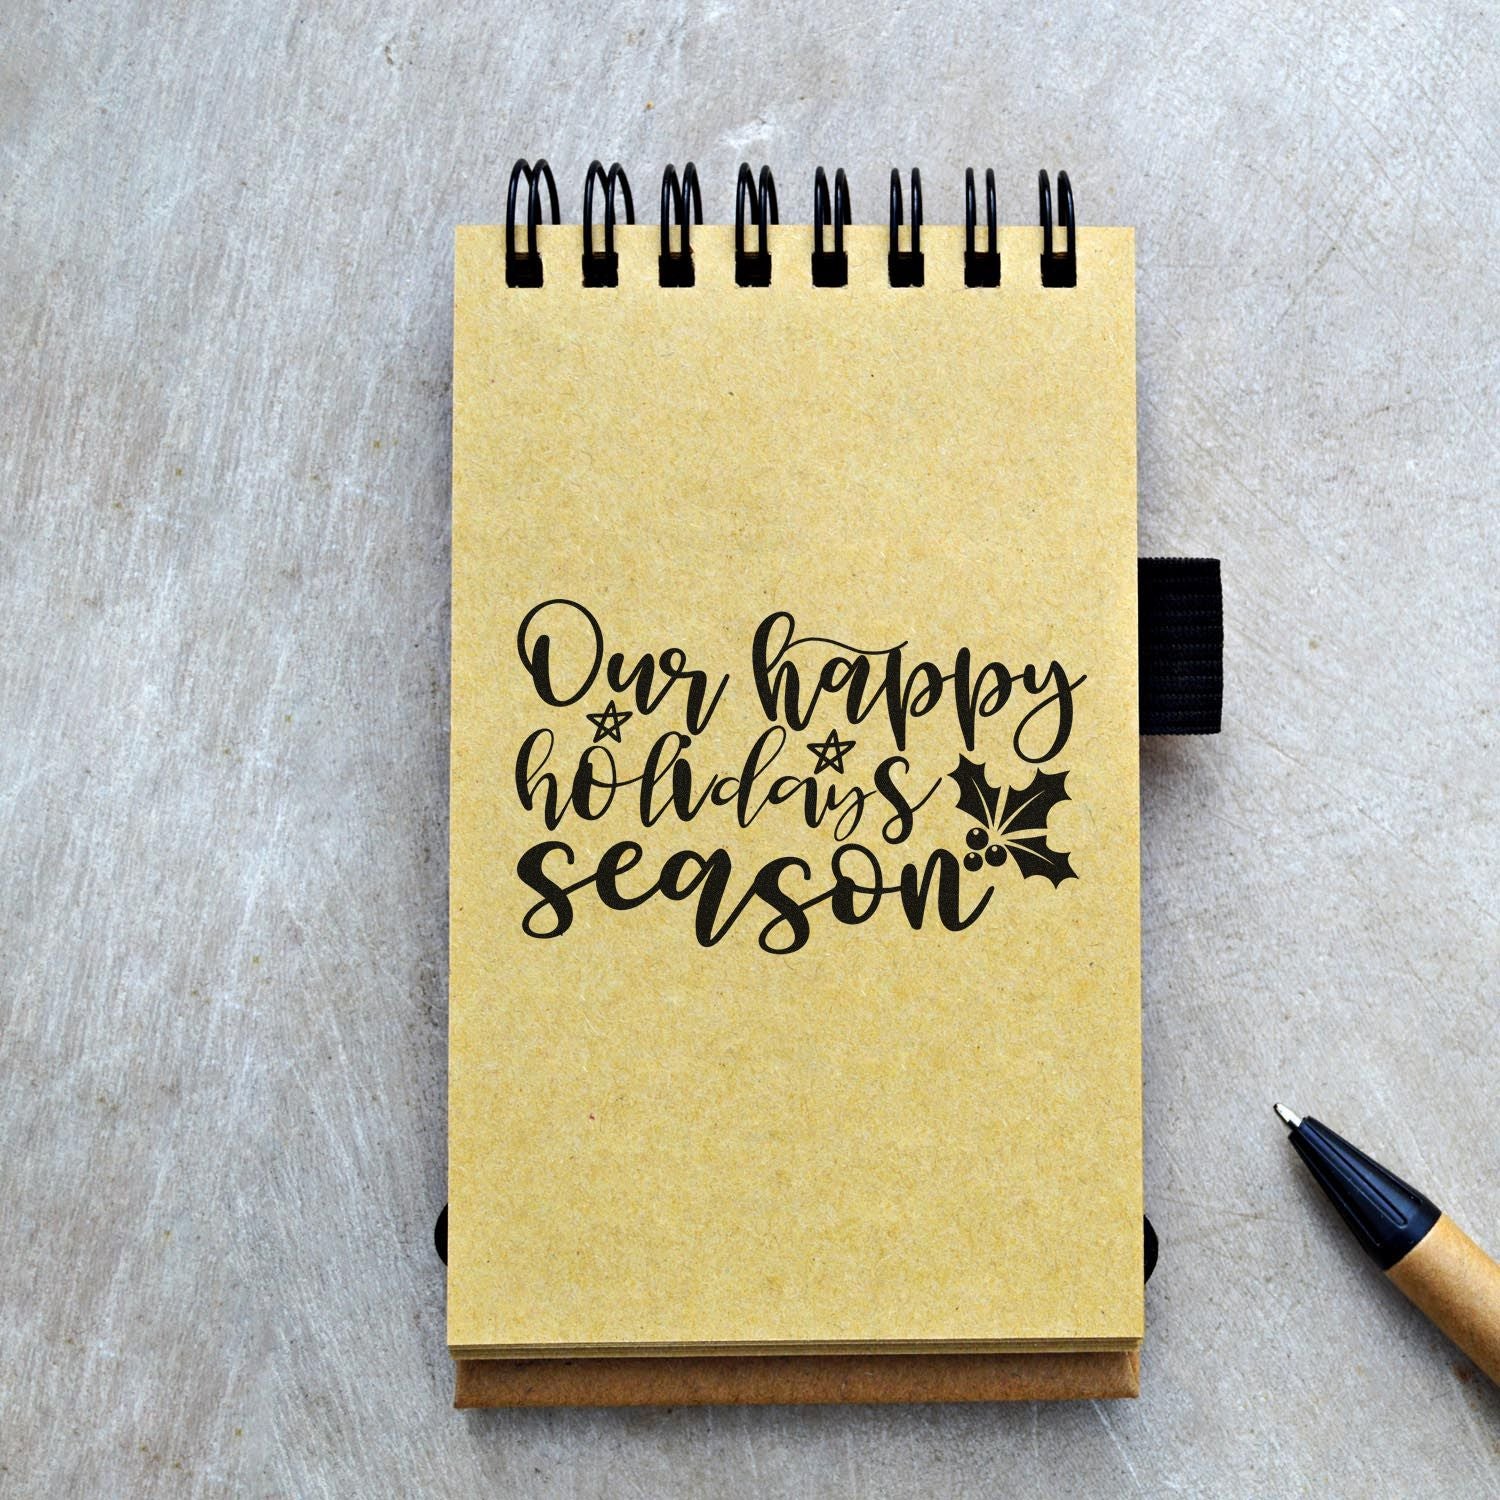 Our happy
holidays
season